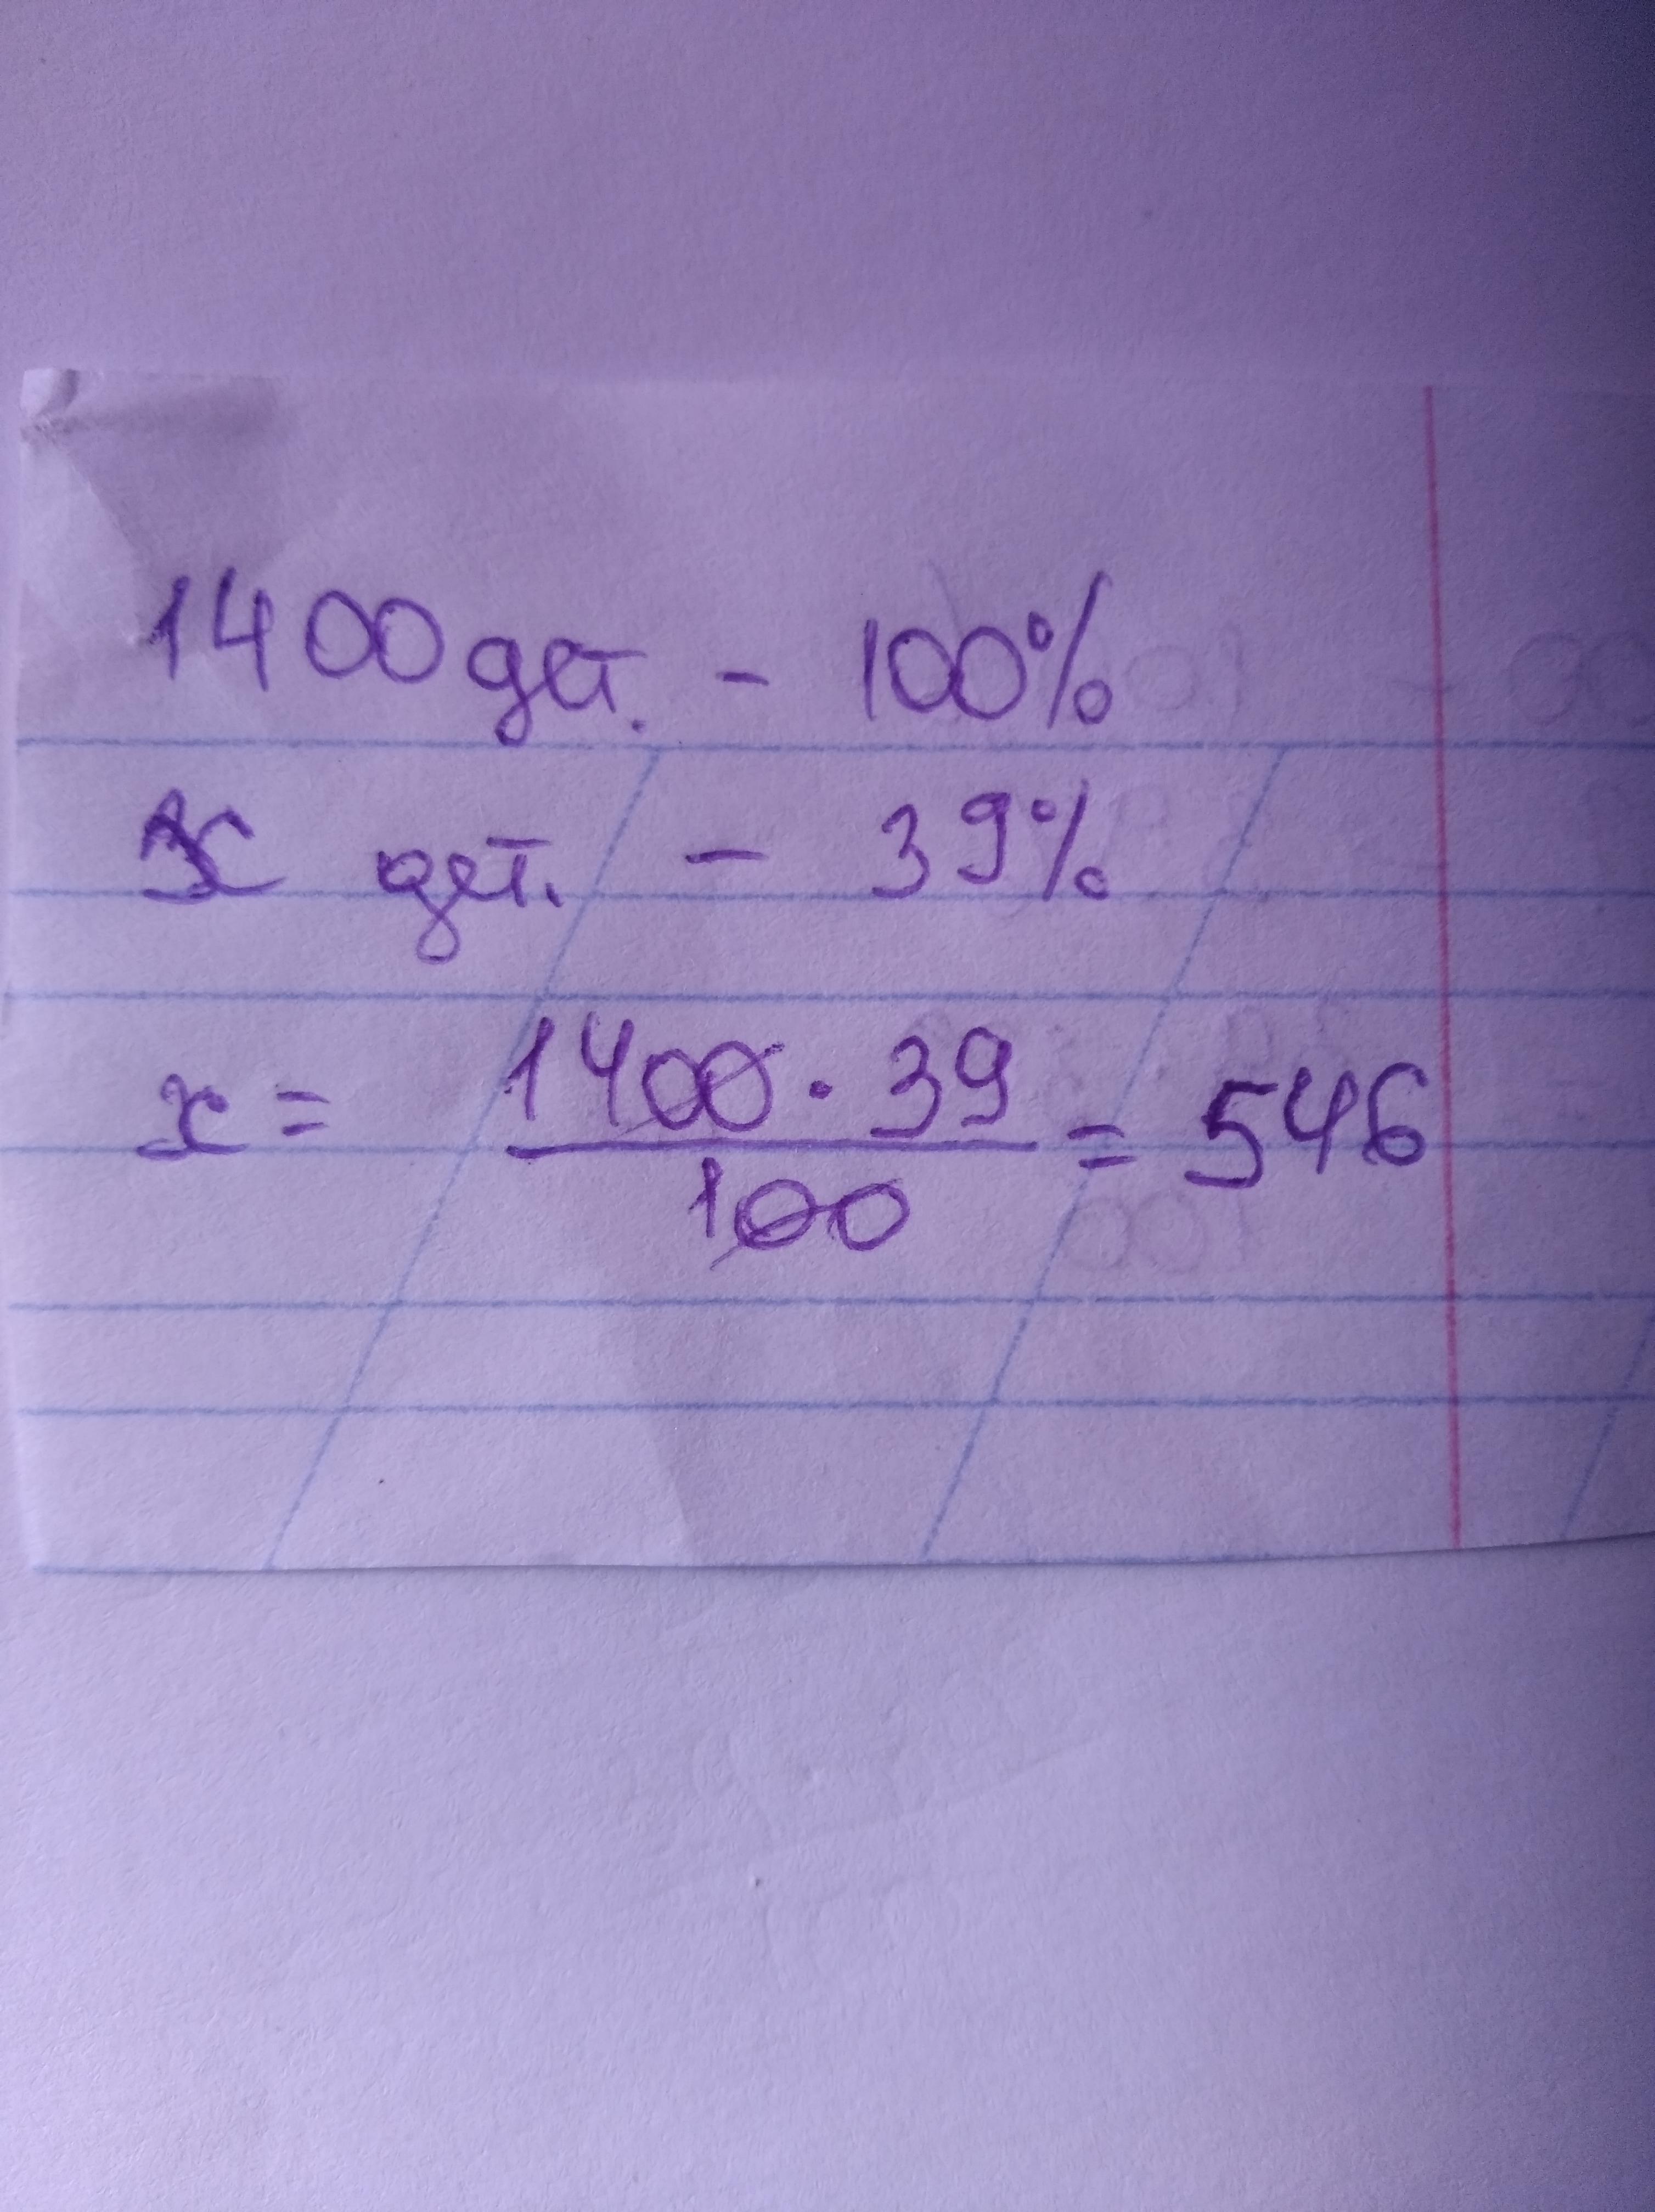 1400 дет. - 100%
х дет. - 39%
х = 1400 · 39 / 100 = 546